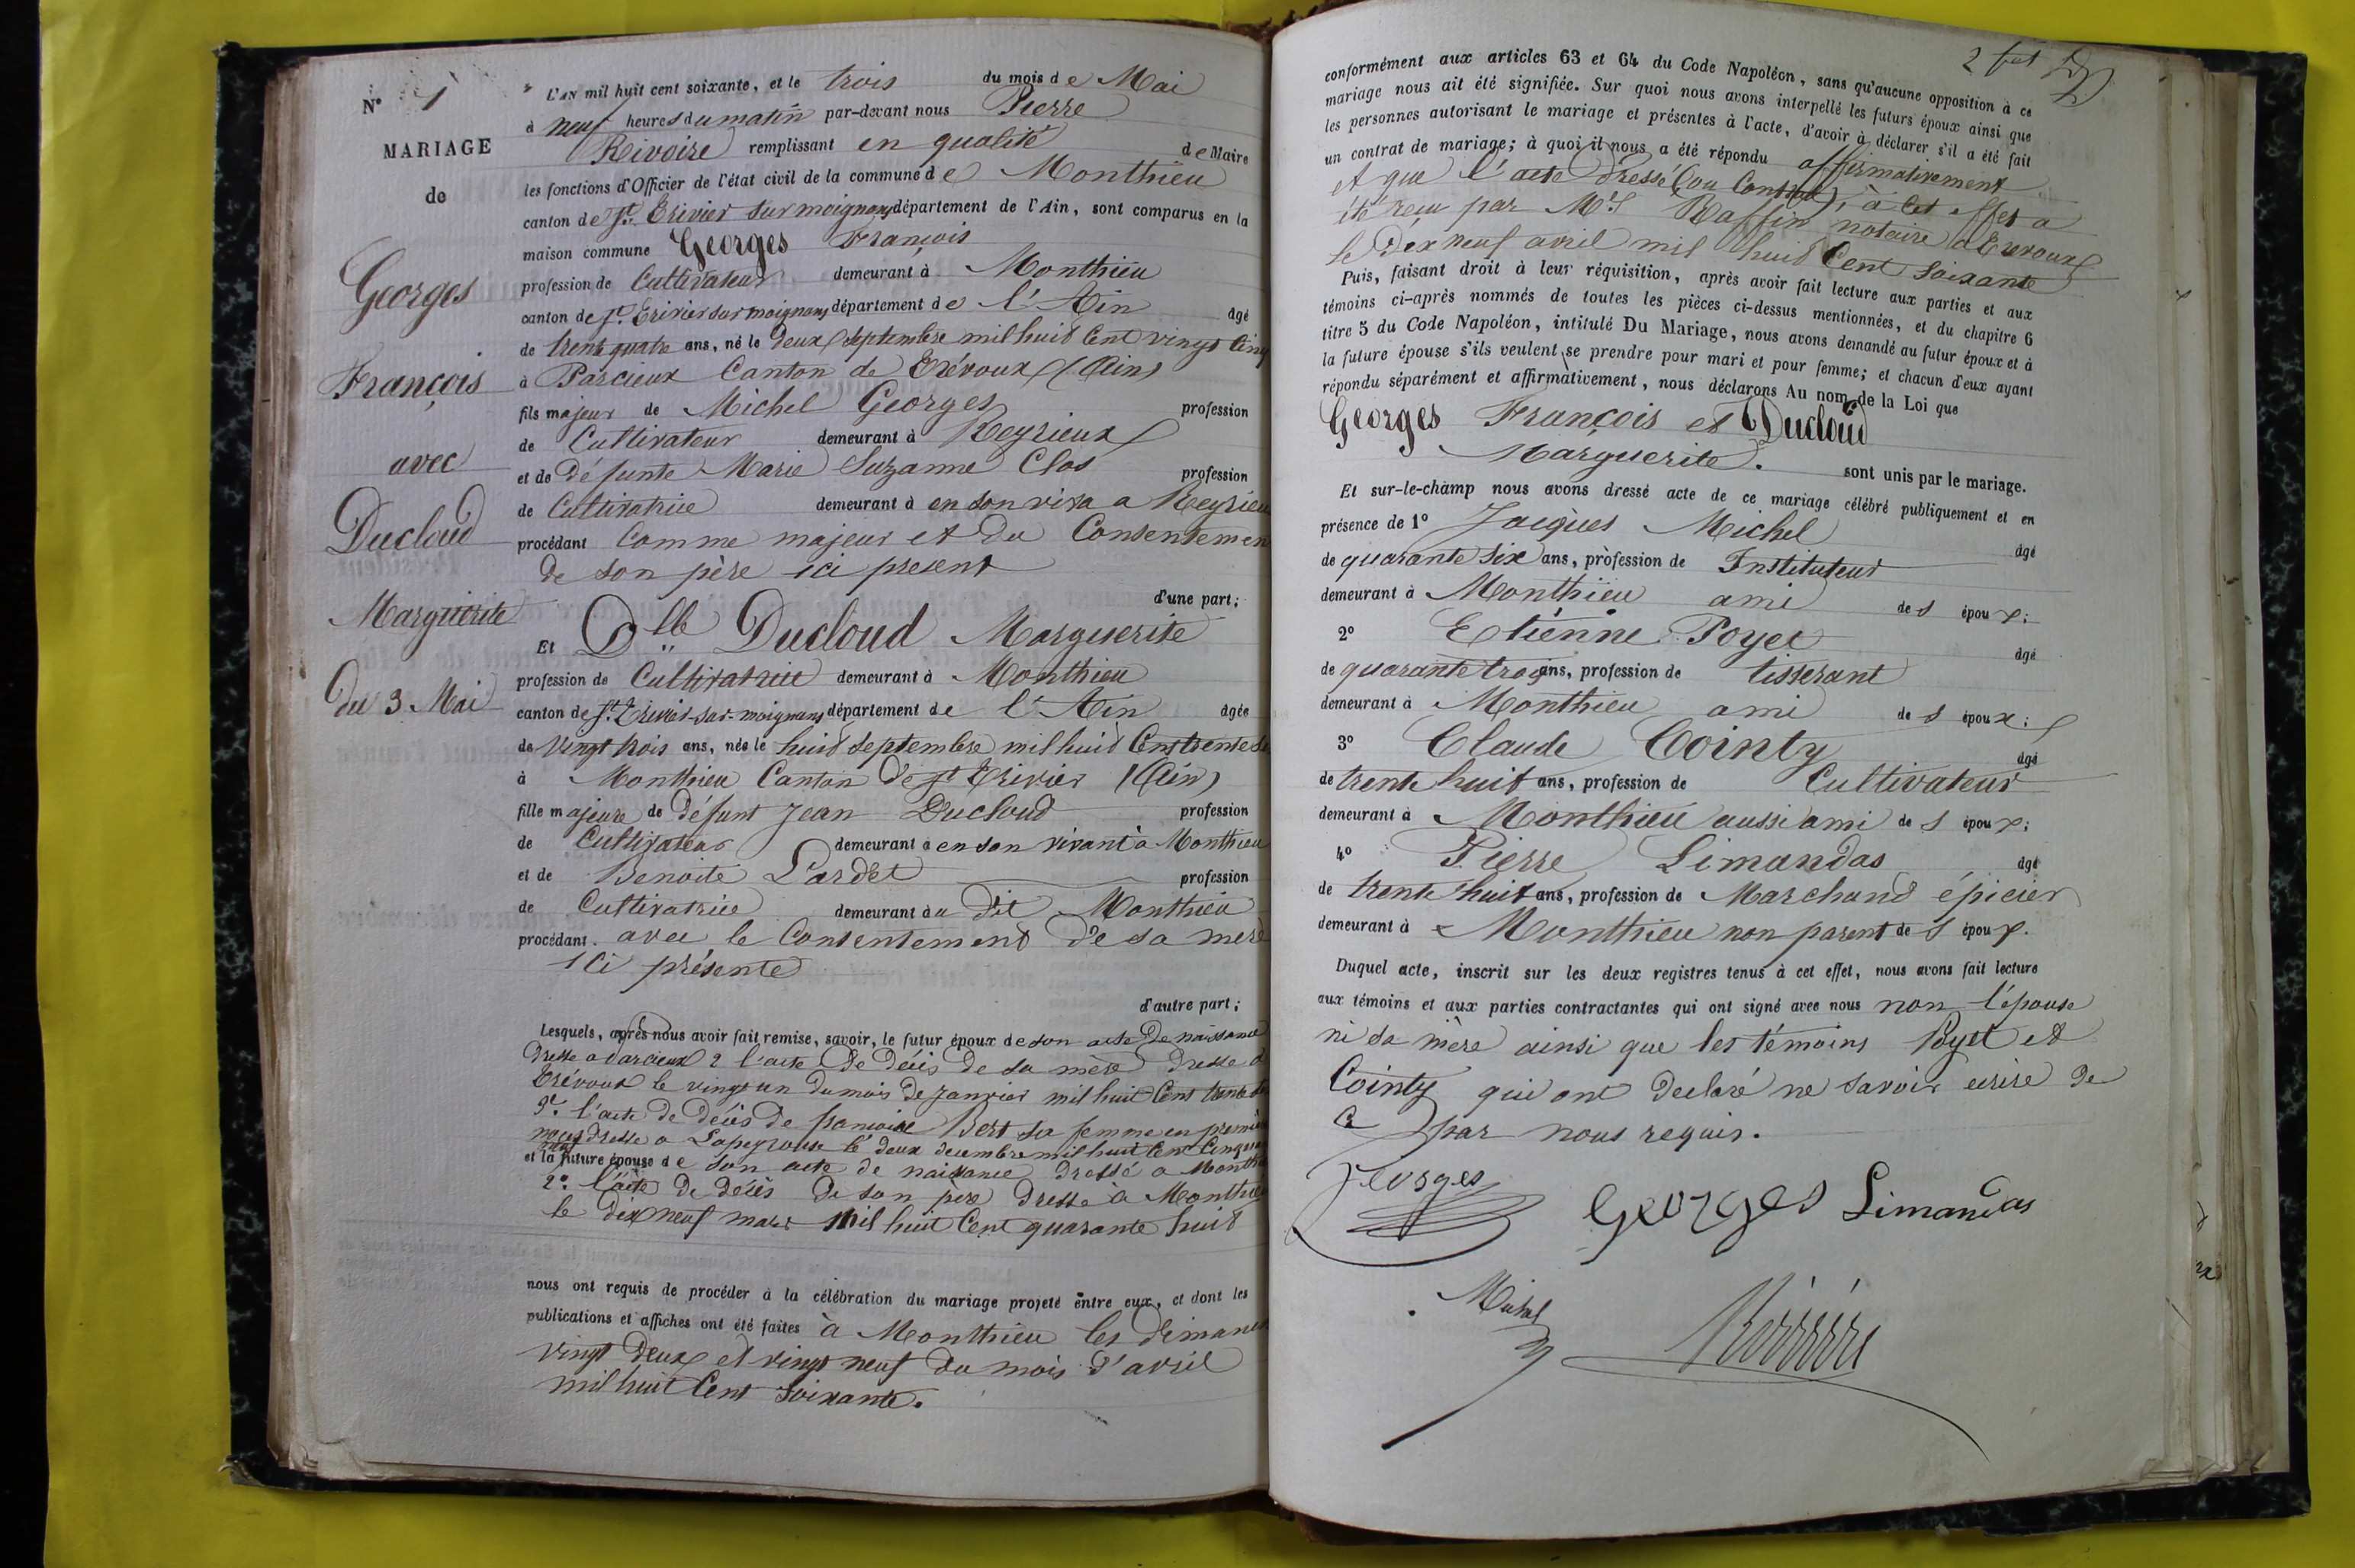 N° 1
MARIAGE
de
Georges
François
avec
Ducloud
Marguerite
du 3 Mai
L'AN mil huit cent soixante, et le trois du mois de Mai
à neuf heures du matin par-devant nous Pierre
Rivoire remplissant en qualité de Maire
les fonctions d'Officier de l'état civil de la commune de Monthieu
canton de St. Trivier sur moignans département de l'Ain, sont comparus en la
maison commune Georges François
profession de Cultivateur demeurant à Monthieu
canton de St. Trivier sur moignans département de l'Ain âgé
de trente quatre ans, né le deux septembre mil huit Cent vingt Cinq
à Parcieux Canton de Trévoux (Ain)
fils majeur de Michel Georges profession
de Cultivateur demeurant à Reyrieux
et de défunte Marie Suzanne Clos profession
de Cultivatrice demeurant à en son viva a Reyrieu
procédant Comme majeur et du Consentemen
de son père ici present
d'une part;
Et Dlle Ducloud Marguerite
profession de Cultivatrice demeurant à Monthieu
canton de St. Trivier-sur-moignans département de l'Ain âgée
de vingt trois ans, née le huit septembre mil huit Cent trente
à Monthieu Canton de St Trivier (Ain)
fille majeure de défunt Jean Ducloud profession
de Cultivateur demeurant à en son vivant à Monthieu
et de Benoite Lardet profession
de Cultivatrice demeurant au dit Monthieu
procédant avec le Consentement de sa mère
ici présente
d'autre part;
Lesquels, après nous avoir fait remise, savoir, le futur époux de son acte de naissance
dressé a Parcieux 2 l'acte de décès de sa mère dressé à
Trévoux le vingt un du mois de Janvier mil huit Cent trente
3°. l'acte de décès de françoise Bert sa femme en premiè
noces dressé a Lapeyrouse le deux decembre mil huit Cent Cinqua
et la future épouse de son acte de naissance dressé a Monthi
2°. l'acte de décès de son père dressé à Monthieu
le dix neuf mars mil huit Cent quarante huit
nous ont requis de procéder à la célébration du mariage projeté entre eux, et dont les
publications et affiches ont été faites à Monthieu les dimanc
vingt deux et vingt neuf du mois d'avril
mil huit Cent soixante.
conformément aux articles 63 et 64 du Code Napoléon, sans qu'aucune opposition à ce
mariage nous ait été signifiée. Sur quoi nous avons interpellé les futurs époux ainsi que
les personnes autorisant le mariage et présentes à l'acte, d'avoir à déclarer s'il a été fait
un contrat de mariage; à quoi il nous a été répondu affirmativement
et que l'acte dressé (ou Contrat), à cet effet a
été reçu par Me Raffin notaire a Trevoux
le dix neuf avril mil huit Cent soixante
Puis, faisant droit à leur réquisition, après avoir fait lecture aux parties et aux
témoins ci-après nommés de toutes les pièces ci-dessus mentionnées, et du chapitre 6
titre 5 du Code Napoléon, intitulé Du Mariage, nous avons demandé au futur époux et à
la future épouse s'ils veulent se prendre pour mari et pour femme; et chacun d'eux ayant
répondu séparément et affirmativement, nous déclarons Au nom de la Loi que
Georges François et Ducloud
Marguerite. sont unis par le mariage.
Et sur-le-champ nous avons dressé acte de ce mariage célébré publiquement et en
présence de 1° Jacques Michel âgé
de quarante six ans, profession de Instituteur
demeurant à Monthieu ami des époux;
2° Etienne Poyet âgé
de quarante trois ans, profession de tisserant
demeurant à Monthieu ami des époux;
3° Claude Cointy âgé
de trente huit ans, profession de Cultivateur
demeurant à Monthieu aussi ami des époux;
4° Pierre Limandas âgé
de trente huit ans, profession de Marchand épicier
demeurant à Monthieu non parent des époux.
Duquel acte, inscrit sur les deux registres tenus à cet effet, nous avons fait lecture
aux témoins et aux parties contractantes qui ont signé avec nous non l'épouse
ni sa mère ainsi que les témoins Poyet et
Cointy qui ont declaré ne savoir ecrire de
ce par nous requis.
Georges Georges Limandas
Michel Rivoire